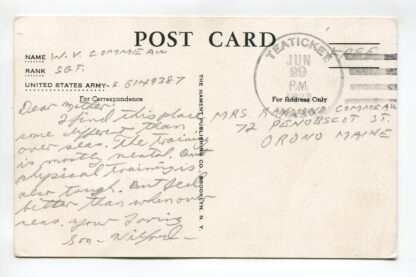 POST CARD
NAME W. V. COMMEAU
RANK SGT.
UNITED STATES ARMY - S 6149387
For Correspondence
Dear Mother:
I find this place
some different than
over seas. The training
is mostly mental. But
physical training is
also tough. But feel
better than when over
seas. your Loving
Son - Wilfred -
THE HAMENT PUBLISHING CO., BROOKLYN, N. Y.
TEATICKET
JUN
29
P.M.
MASS.
FREE
For Address Only
MRS. RAYMOND COMMEAU
72 PENOBSCOT ST.
ORONO MAINE